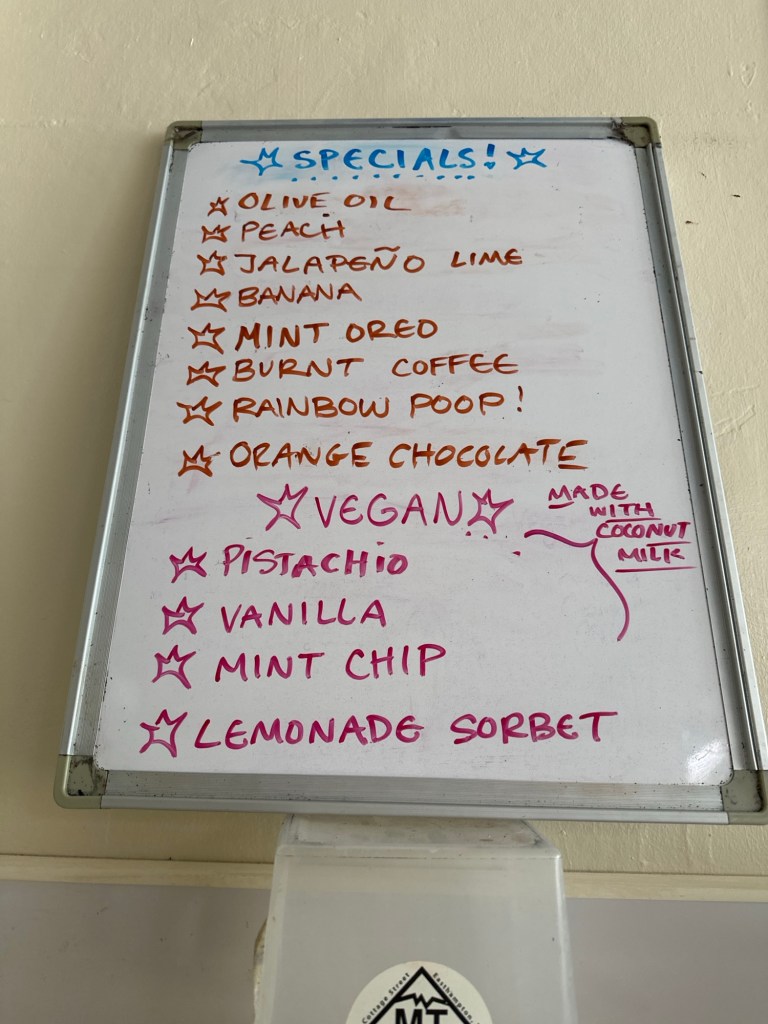 SPECIALS!
OLIVE OIL
PEACH
JALAPEÑO LIME
BANANA
MINT OREO
BURNT COFFEE
RAINBOW POOP!
ORANGE CHOCOLATE
VEGAN
MADE
WITH
COCONUT
MILK
PISTACHIO
VANILLA
MINT CHIP
LEMONADE SORBET
Cottage Street Easthampton
MT